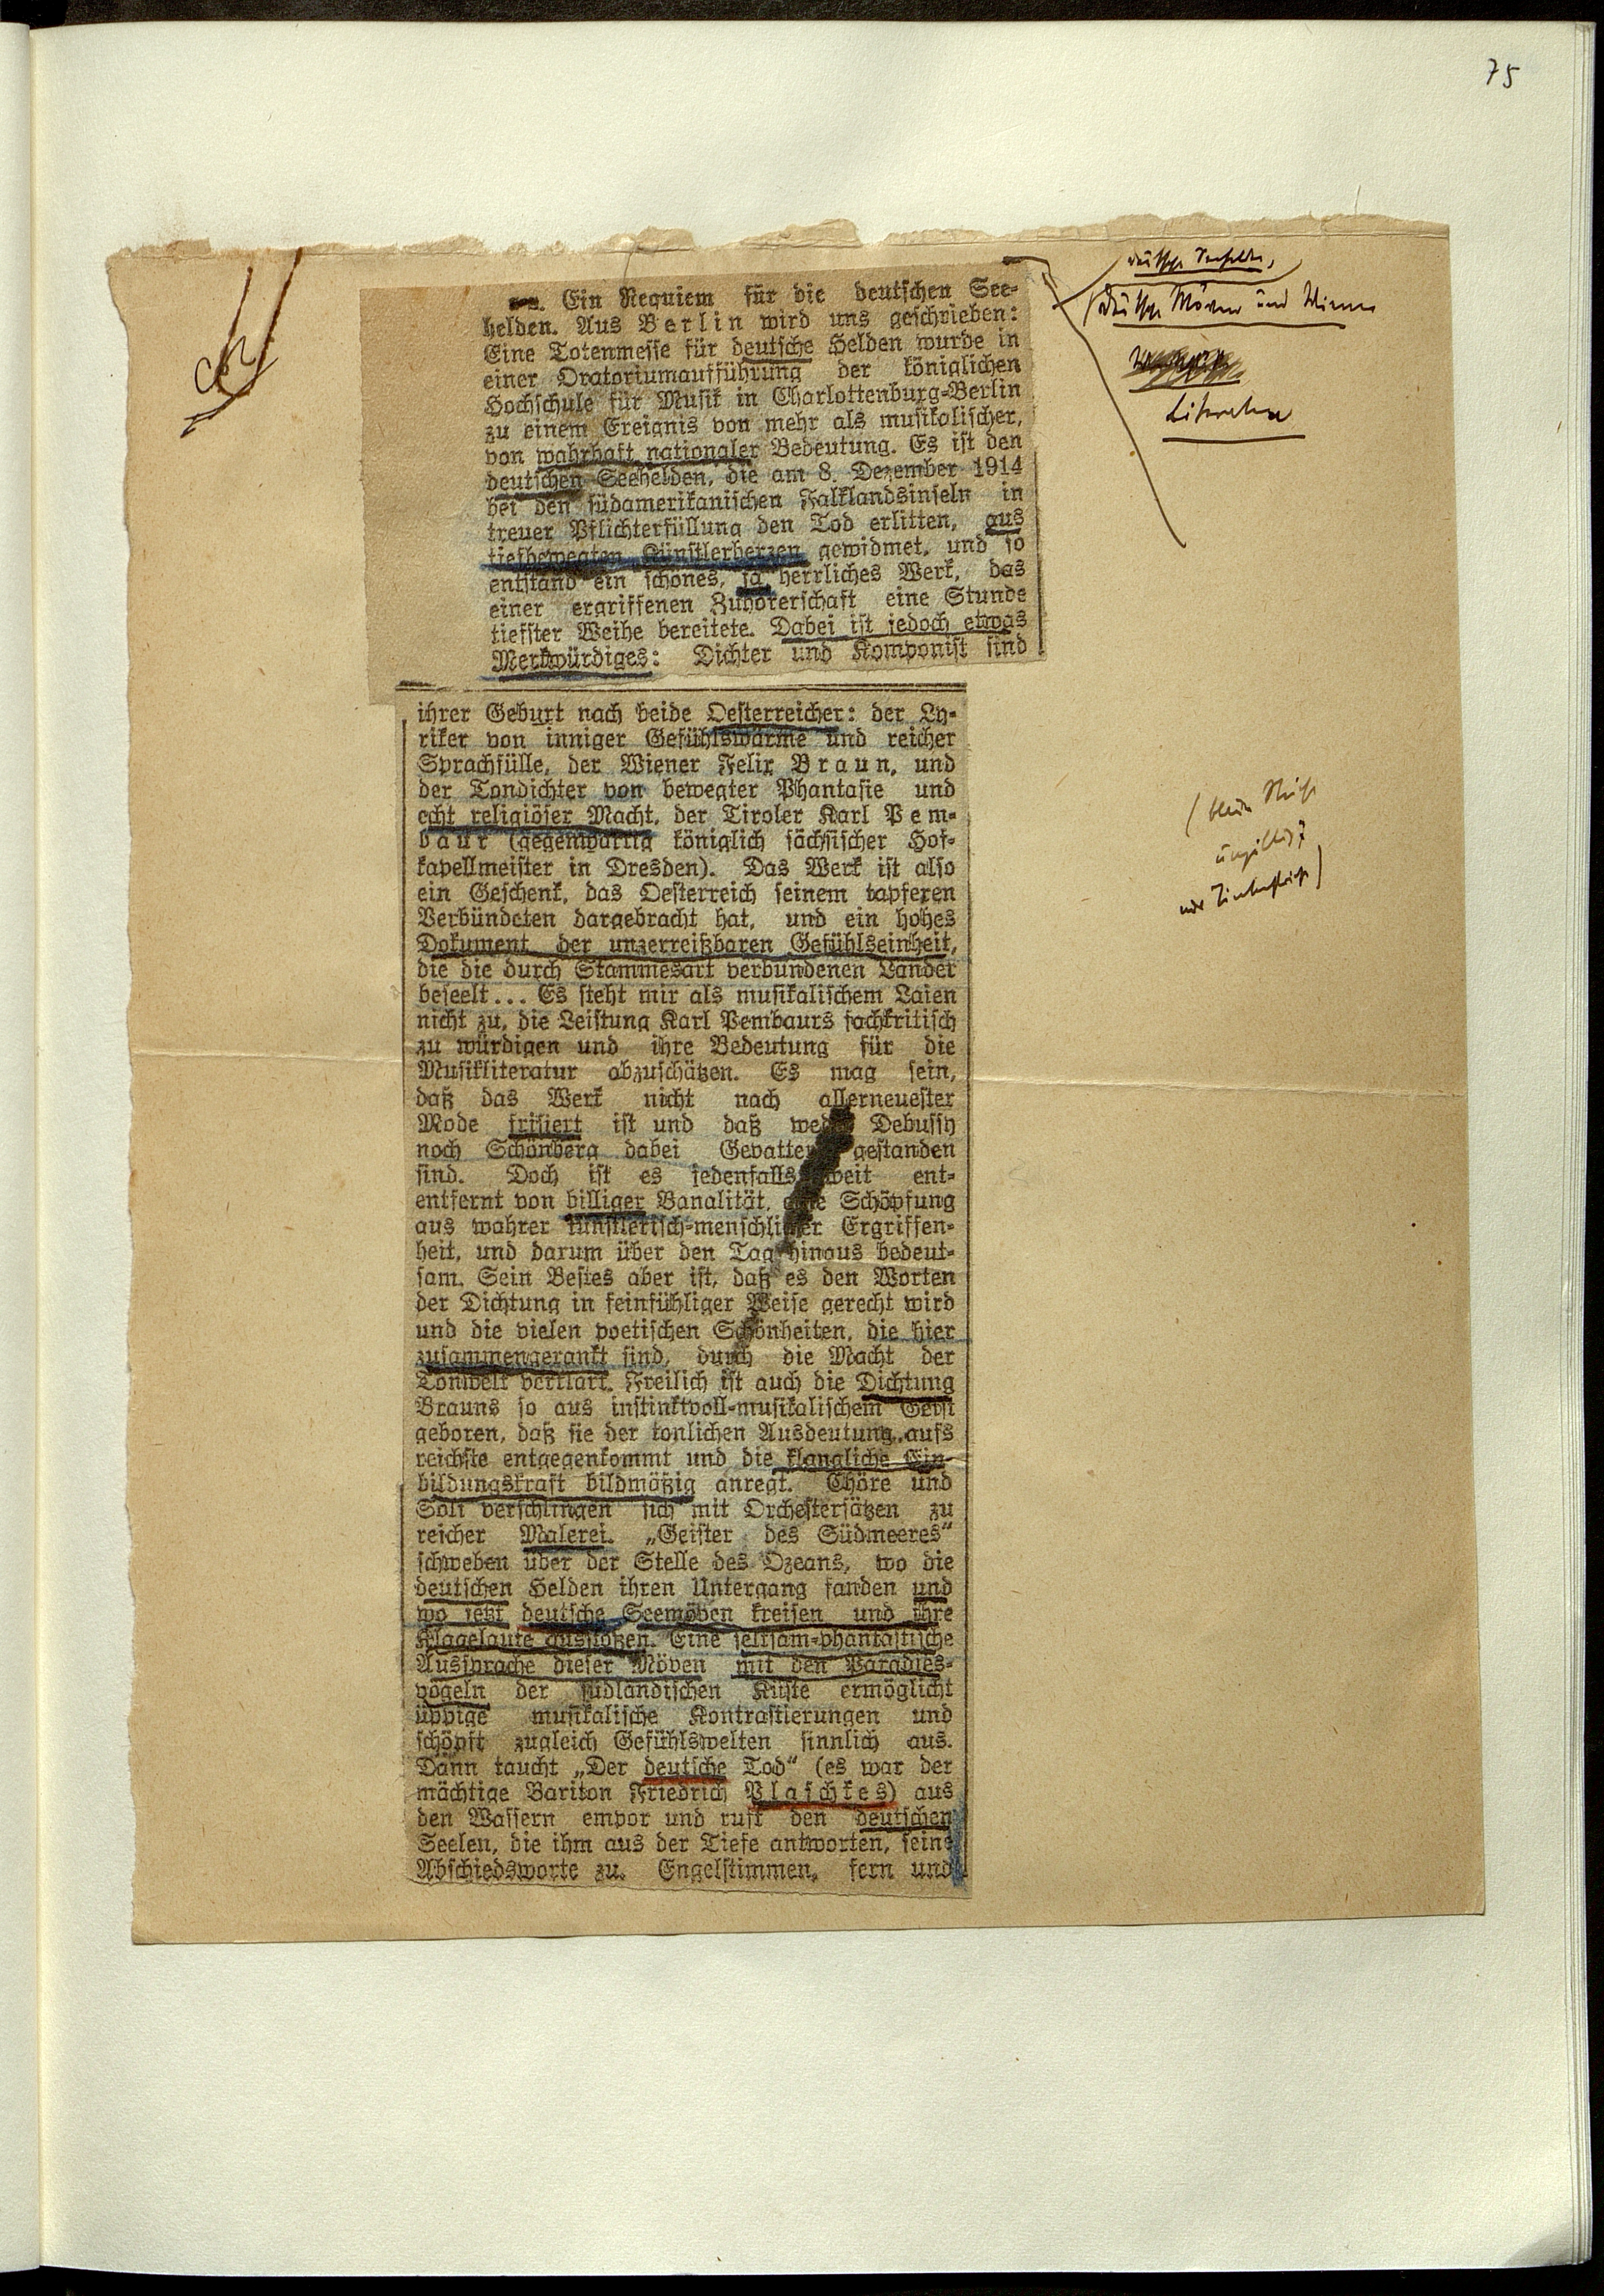 75
Ein Requiem für die deutschen See-
helden. Aus Berlin wird uns geschrieben:
Eine Totenmesse für deutsche Helden wurde in
einer Oratoriumaufführung der königlichen
Hochschule für Musik in Charlottenburg-Berlin
zu einem Ereignis von mehr als musikalischer,
von wahrhaft nationaler Bedeutung. Es ist den
deutschen Seehelden, die am 8. Dezember 1914
bei den südamerikanischen Falklandsinseln in
treuer Pflichterfüllung den Tod erlitten, aus
tiefbewegten Künstlerherzen gewidmet, und so
entstand ein schönes, ja herrliches Werk, das
einer ergriffenen Zuhörerschaft eine Stunde
tiefster Weihe bereitete. Dabei ist jedoch etwas
Merkwürdiges: Dichter und Komponist sind
ihrer Geburt nach beide Oesterreicher: der Ly-
riker von inniger Gefühlswärme und reicher
Sprachfülle, der Wiener Felix Braun, und
der Tondichter von bewegter Phantasie und
echt religiöser Macht, der Tiroler Karl Pem-
baur (gegenwärtig königlich sächsischer Hof-
kapellmeister in Dresden). Das Werk ist also
ein Geschenk, das Oesterreich seinem tapferen
Verbündeten dargebracht hat, und ein hohes
Dokument der unzerreißbaren Gefühlseinheit,
die die durch Stammesart verbundenen Länder
beseelt... Es steht mir als musikalischem Laien
nicht zu, die Leistung Karl Pembaurs fachkritisch
zu würdigen und ihre Bedeutung für die
Musikliteratur abzuschätzen. Es mag sein,
daß das Werk nicht nach allerneuester
Mode frisiert ist und daß weder Debussy
noch Schönberg dabei Gevatter gestanden
sind. Doch ist es jedenfalls weit ent-
entfernt von billiger Banalität, eine Schöpfung
aus wahrer künstlerisch-menschlicher Ergriffen-
heit, und darum über den Tag hinaus bedeut-
sam. Sein Bestes aber ist, daß es den Worten
der Dichtung in feinfühliger Weise gerecht wird
und die vielen poetischen Schönheiten, die hier
zusammengerankt sind, durch die Macht der
Tonwelt verklärt. Freilich ist auch die Dichtung
Brauns so aus instinktvoll-musikalischem Geist
geboren, daß sie der tonlichen Ausdeutung aufs
reichste entgegenkommt und die klangliche Ein-
bildungskraft bildmäßig anregt. Chöre und
Soli verschlingen sich mit Orchestersätzen zu
reicher Malerei. „Geister des Südmeeres“
schweben über der Stelle des Ozeans, wo die
deutschen Helden ihren Untergang fanden und
wo jetzt deutsche Seemöven kreisen und ihre
Klagelaute ausstoßen. Eine seltsam-phantastische
Aussprache dieser Möven mit den Paradies-
vögeln der südländischen Küste ermöglicht
üppige musikalische Kontrastierungen und
schöpft zugleich Gefühlswelten sinnlich aus.
Dann taucht „Der deutsche Tod“ (es war der
mächtige Bariton Friedrich Plaschkes) aus
den Wassern empor und ruft den deutschen
Seelen, die ihm aus der Tiefe antworten, seine
Abschiedsworte zu. Engelstimmen, fern und